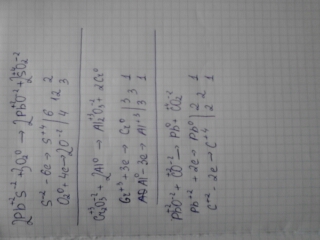 2Pb⁺²S⁻² + 3O₂⁰ → 2Pb⁺²O⁻² + 2S⁺⁴O₂⁻²
S⁻² - 6e → S⁺⁴ | 6 | 12 | 2
O₂⁰ + 4e → 2O⁻² | 4 | 3
Cr₂⁺³O₃⁻² + 2Al⁰ → Al₂⁺³O₃⁻² + 2Cr⁰
Cr⁺³ + 3e → Cr⁰ | 3 | 3 | 1
Al⁰ - 3e → Al⁺³ | 3 | 1
Pb⁺²O⁻² + C⁺²O⁻² → Pb⁰ + C⁺⁴O₂⁻²
Pb⁺² + 2e → Pb⁰ | 2 | 2 | 1
C⁺² - 2e → C⁺⁴ | 2 | 1